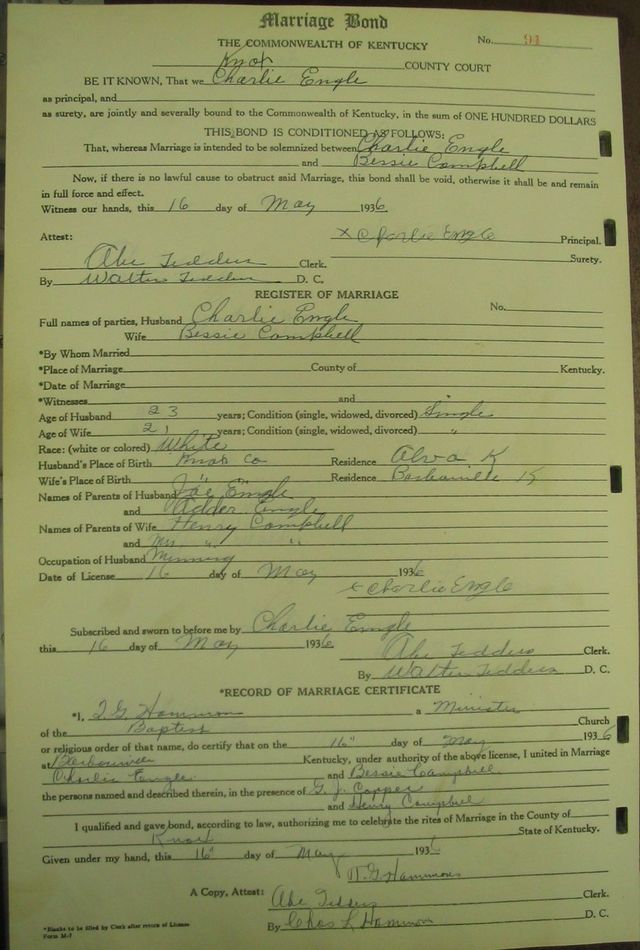 Marriage Bond
No. 91
THE COMMONWEALTH OF KENTUCKY
Knox COUNTY COURT
BE IT KNOWN, That we Charlie Engle
as principal, and
as surety, are jointly and severally bound to the Commonwealth of Kentucky, in the sum of ONE HUNDRED DOLLARS
THIS BOND IS CONDITIONED AS FOLLOWS:
That, whereas Marriage is intended to be solemnized between Charlie Engle
and Bessie Campbell
Now, if there is no lawful cause to obstruct said Marriage, this bond shall be void, otherwise it shall be and remain
in full force and effect.
Witness our hands, this 16 day of May 1936.
Attest: x Charlie Engle Principal.
Surety.
Abe Tedders Clerk.
By Walter Tedders D. C.
REGISTER OF MARRIAGE
No.
Full names of parties, Husband Charlie Engle
Wife Bessie Campbell
*By Whom Married
*Place of Marriage County of Kentucky.
*Date of Marriage
*Witnesses and
Age of Husband 23 years; Condition (single, widowed, divorced) Single
Age of Wife 21 years; Condition (single, widowed, divorced) "
Race: (white or colored) White
Husband's Place of Birth Knox Co Residence Alva K
Wife's Place of Birth " " Residence Barbourville K
Names of Parents of Husband Joe Engle
and Adder Engle
Names of Parents of Wife Henry Campbell
and Mrs " "
Occupation of Husband Minning
Date of License 16 day of May 1936
x Charlie Engle
Subscribed and sworn to before me by Charlie Emgle
this 16 day of May 1936
Abe Tedders Clerk.
By Walter Tedders D. C.
*RECORD OF MARRIAGE CERTIFICATE
*I, Hammon a Minister
of the Baptist Church
or religious order of that name, do certify that on the 16" day of May 1936
at Barbourville Kentucky, under authority of the above license, I united in Marriage
Charlie Engle and Bessie Campbell
the persons named and described therein, in the presence of G. J. Copper
and Henry Campbell
I qualified and gave bond, according to law, authorizing me to celebrate the rites of Marriage in the County of
Knox State of Kentucky.
Given under my hand, this 16" day of May 1936
Hammons
A Copy, Attest: Abe Tedders Clerk.
By Chas L Hammon D. C.
*Blanks to be filled by Clerk after return of License
Form M-7